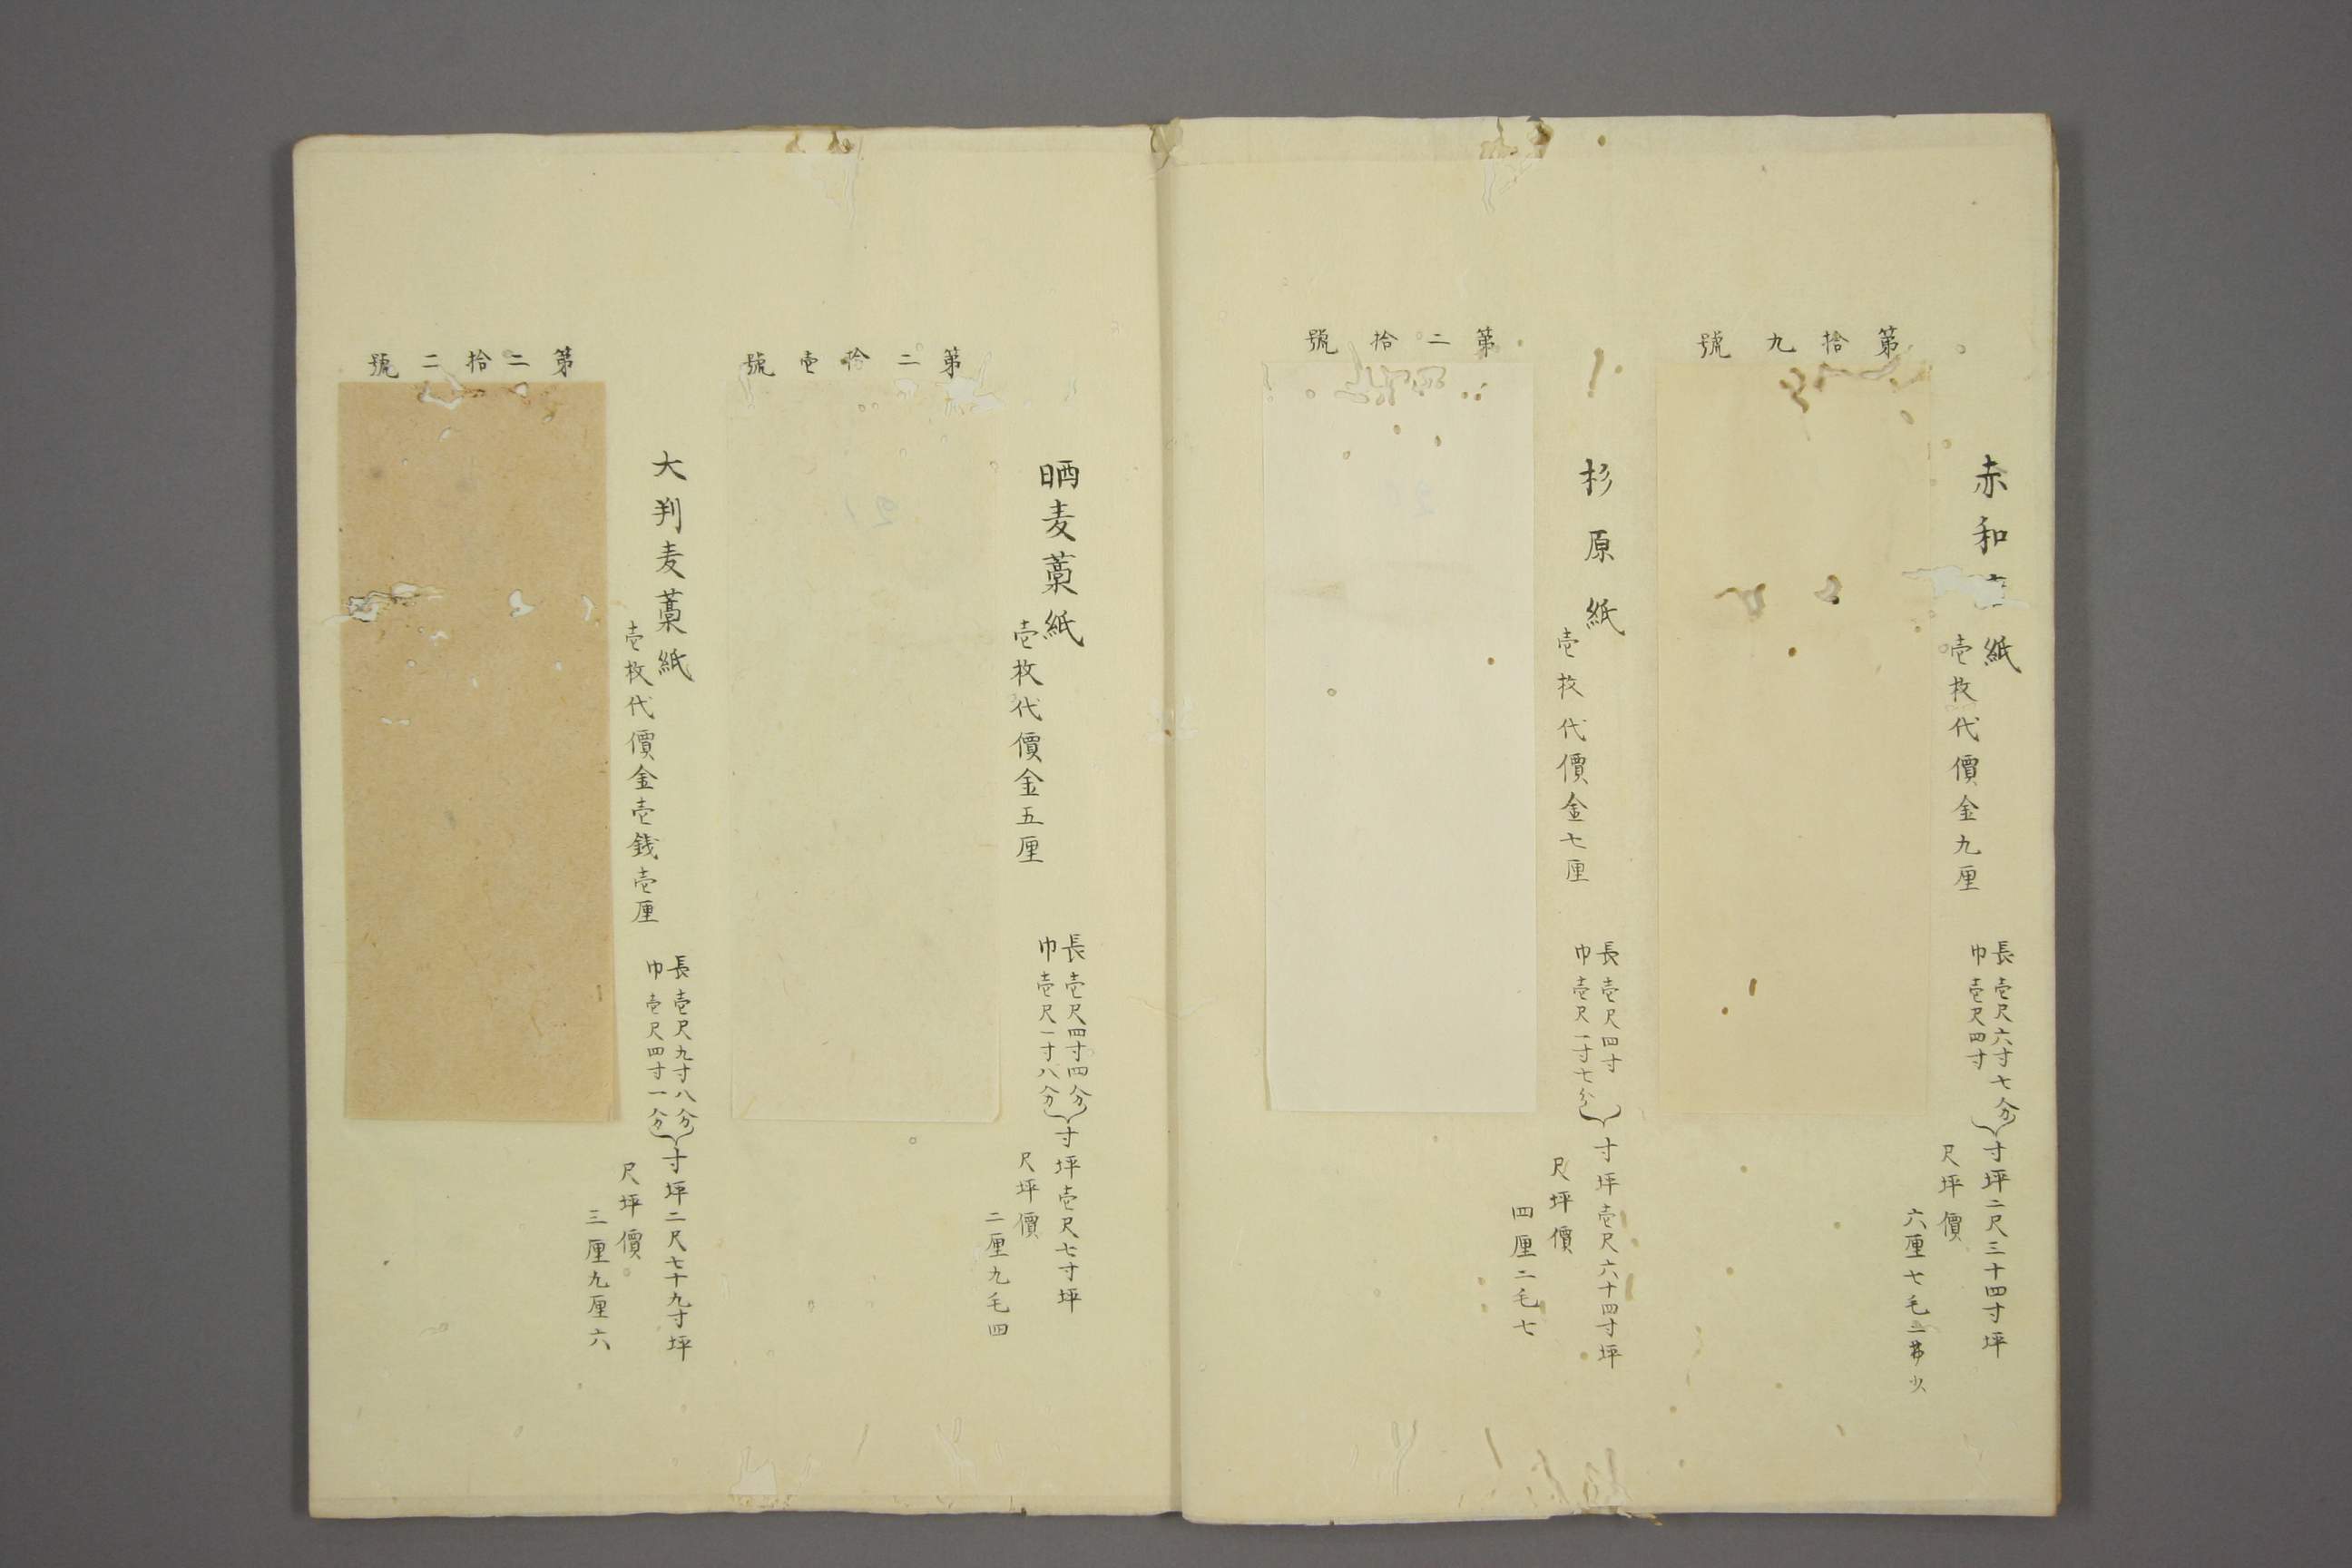 第拾九號
赤和紙
壱枚代價金九厘
長壱尺六寸七分
巾壱尺四寸
寸坪二尺三十四寸坪
尺坪價
六厘七毛二
第二拾號
杉原紙
壱枚代價金七厘
長壱尺四寸
巾壱尺一寸七分
寸坪壱尺六十四寸坪
尺坪價
四厘二毛七
第二拾壱號
晒麦藁紙
壱枚代價金五厘
長壱尺四寸四分
巾壱尺一寸八分
寸坪壱尺七寸坪
尺坪價
二厘九毛四
第二拾二號
大判麦藁紙
壱枚代價金壱銭壱厘
長壱尺九寸八分
巾壱尺四寸一分
寸坪二尺七十九寸坪
尺坪價
三厘九厘六